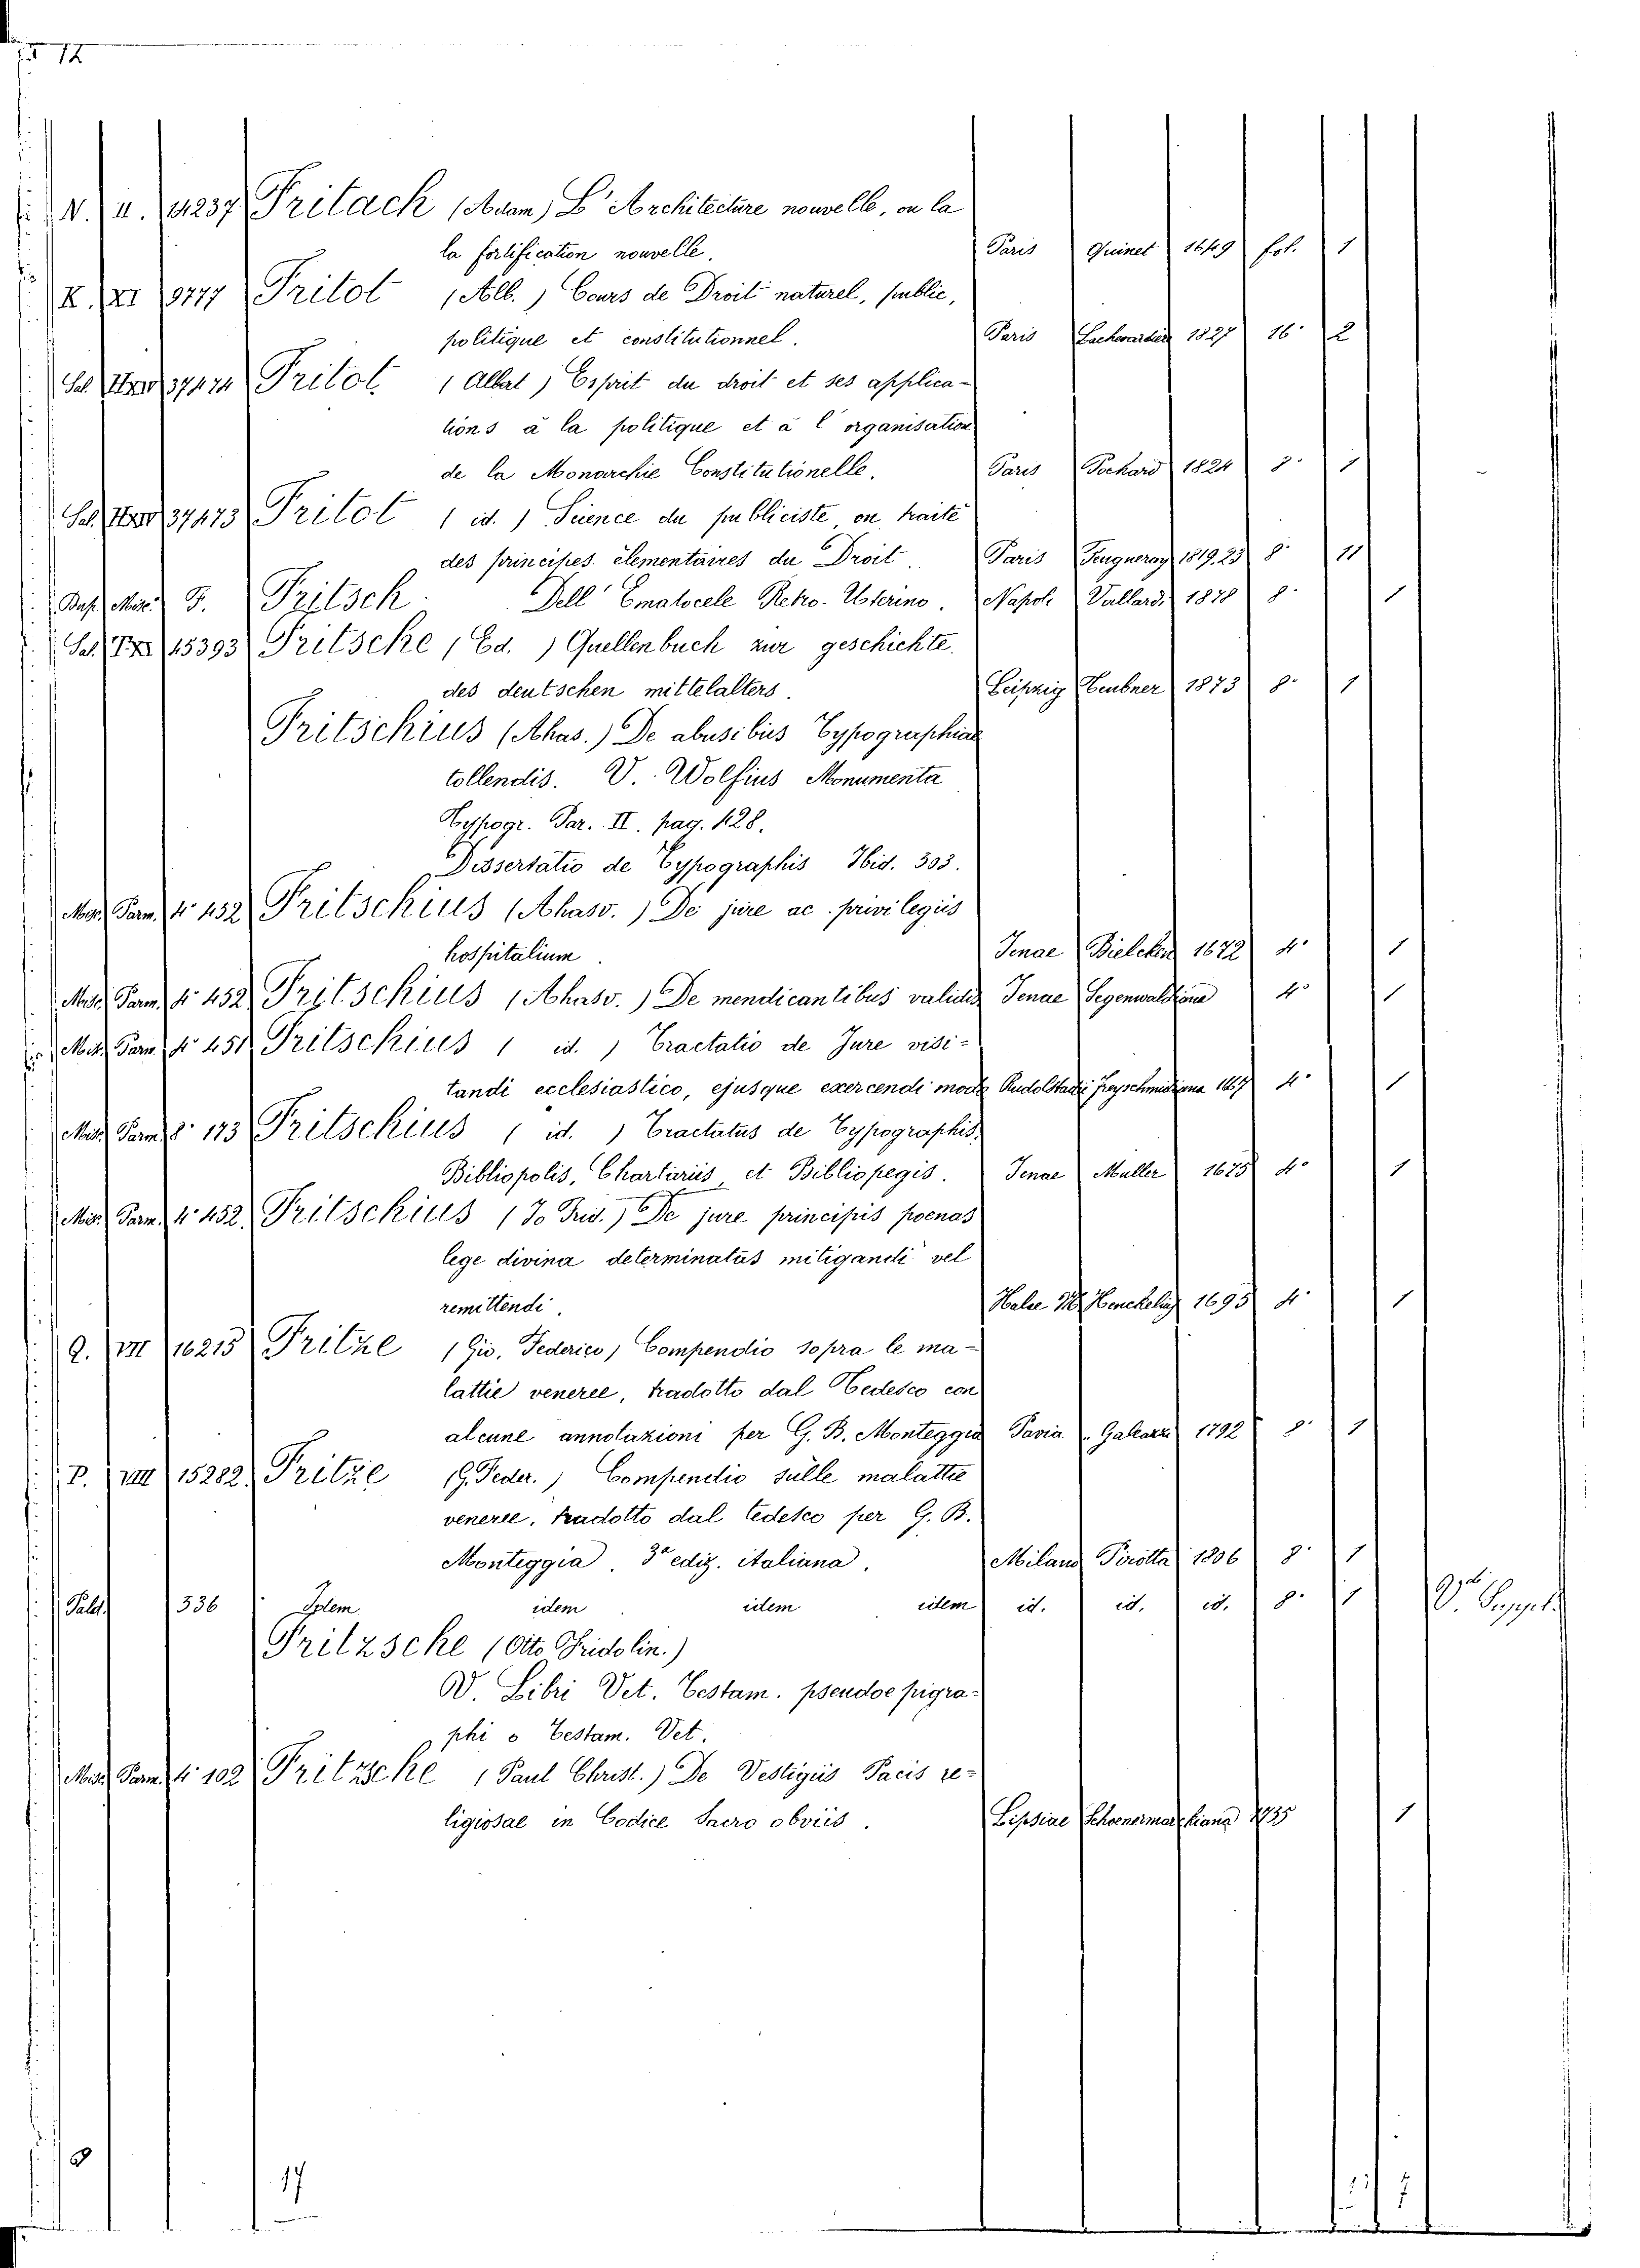 12
N. II. 14237 Fritack (Adam) L'Architecture nouvelle, ou la
la fortification nouvelle. Paris Quinet 1649 fol. 1
K. XI 9777 Fritot (Alb.) Cours de Droit naturel, public,
politique et constitutionnel. Paris 1827 16° 2
Sal. 37474 Fritot (Albert) Esprit du droit et ses applica-
tions à la politique et à l'organisation
de la Monarchie Constitutionelle. Paris Pochard 1824 8° 1
Sal. 37473 Fritot (id.) Science du publiciste, ou traité
des principes élementaires du Droit. Paris Feugueray 1819.23 8° 11
Misc. F. Fritsch Dell' Ematocele Retro-Uterino. Napoli Vallardi 1878 8° 1
Sal. 15393 Fritsche (Ed.) Quellenbuch zur geschichte
des deutschen mittelalters. Leipzig Teubner 1873 8° 1
Fritschius (Ahas.) De abusibus Typographiae
tollendis. V. Wolfius Monumenta
Typogr. Par. II. pag. 428.
Dissertatio de Typographis Ibid. 303.
Misc. Parm. 4° 432 Fritschius (Ahasv.) De jure ac privilegiis
hospitalium. Jenae Bielcken 1672 4° 1
Misc. Parm. 4° 452 Fritschius (Ahasv.) De mendicantibus validis Jenae Segenwaldiana 4° 1
Misc. Parm. 4° 451 Fritschius (id.) Tractatio de Jure visi-
tandi ecclesiastico, ejusque exercendi modo Rudolstadii Freyschmidiana 1667 4° 1
Misc. Parm. 8° 173 Fritschius (id.) Tractatus de Typographis,
Bibliopolis, Chartariis, et Bibliopegis. Jenae Muller 1675 4° 1
Misc. Parm. 4° 452 Fritschius (Jo Frid.) De jure principis poenas
lege divina determinatas mitigandi vel
remittendi. Halae M. Henckelius 1695 4° 1
Q. VII 16215 Fritze (Gio. Federico) Compendio sopra le ma-
lattie veneree, tradotto dal Tedesco con
alcune annotazioni per G. B. Monteggia Pavia Galeazzi 1792 8° 1
P. VIII 15282 Fritze (G. Feder.) Compendio sulle malattie
veneree, tradotto dal tedesco per G. B.
Monteggia. 3ª ediz. italiana. Milano Pirotta 1806 8° 1
Palat. 336 Idem idem idem idem id. id. id. 8° 1 V. Suppl.
Fritzsche (Otto Fridolin.)
V. Libri Vet. Testam. pseudoepigra-
phi o Testam. Vet.
Misc. Parm. 4° 102 Fritzscke (Paul Christ.) De Vestigiis Pacis re-
ligiosae in Codice Sacro obviis. Lipsiae Schoenermarckiana 1735 1
17
7